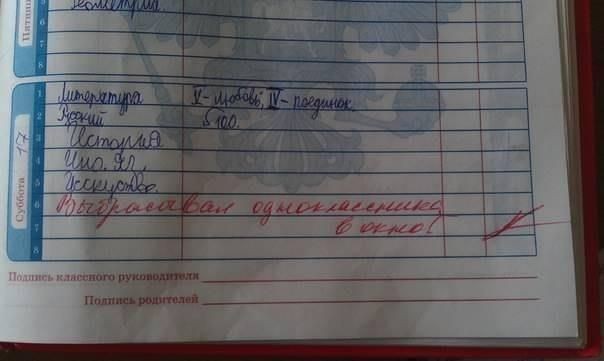 Пятниц
5 Геометрия
6
7
8
1 Литература V-любовь; IV-поединок.
2 Русский §100.
3 История
4 Ино. яз.
5 Исскуство.
6 Выбрасывал одноклассника
7 в окно!
8
Суббота 17
Подпись классного руководителя
Подпись родителей